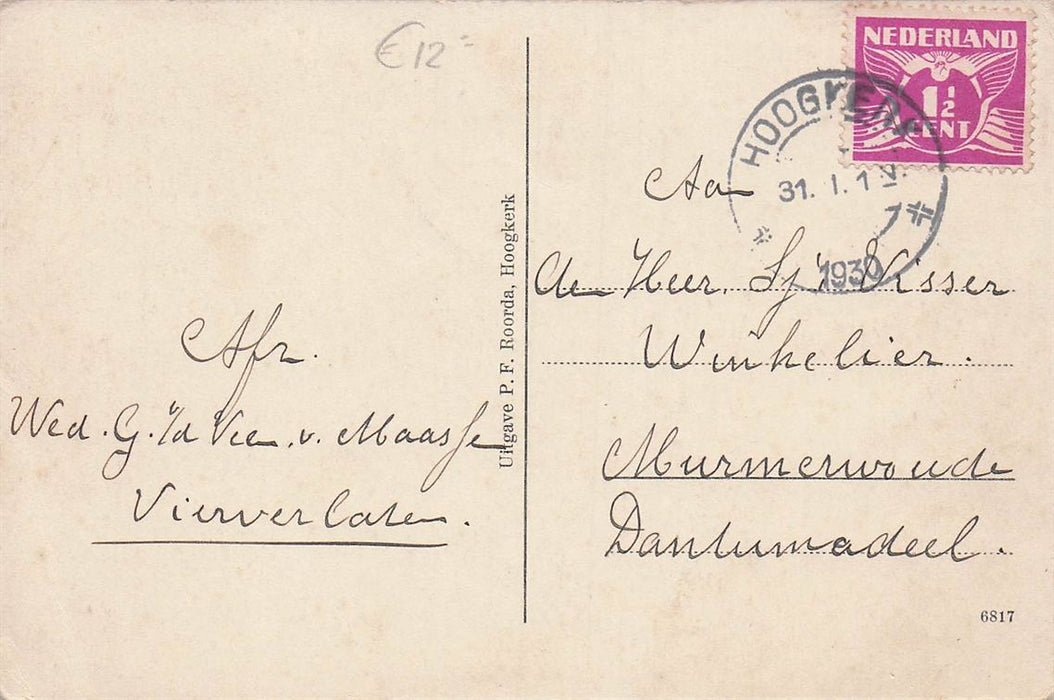 €12=
NEDERLAND
1½
CENT
HOOGKERK
31. 1. 1 V.
7
1930
Aan
de Heer Sj. Visser
Winkelier.
Murmerwoude
Dantumadeel.
Afz.
Wed. G. v/d Veen. v. Maasse
Vierverlaten.
Uitgave P. F. Roorda, Hoogkerk
6817